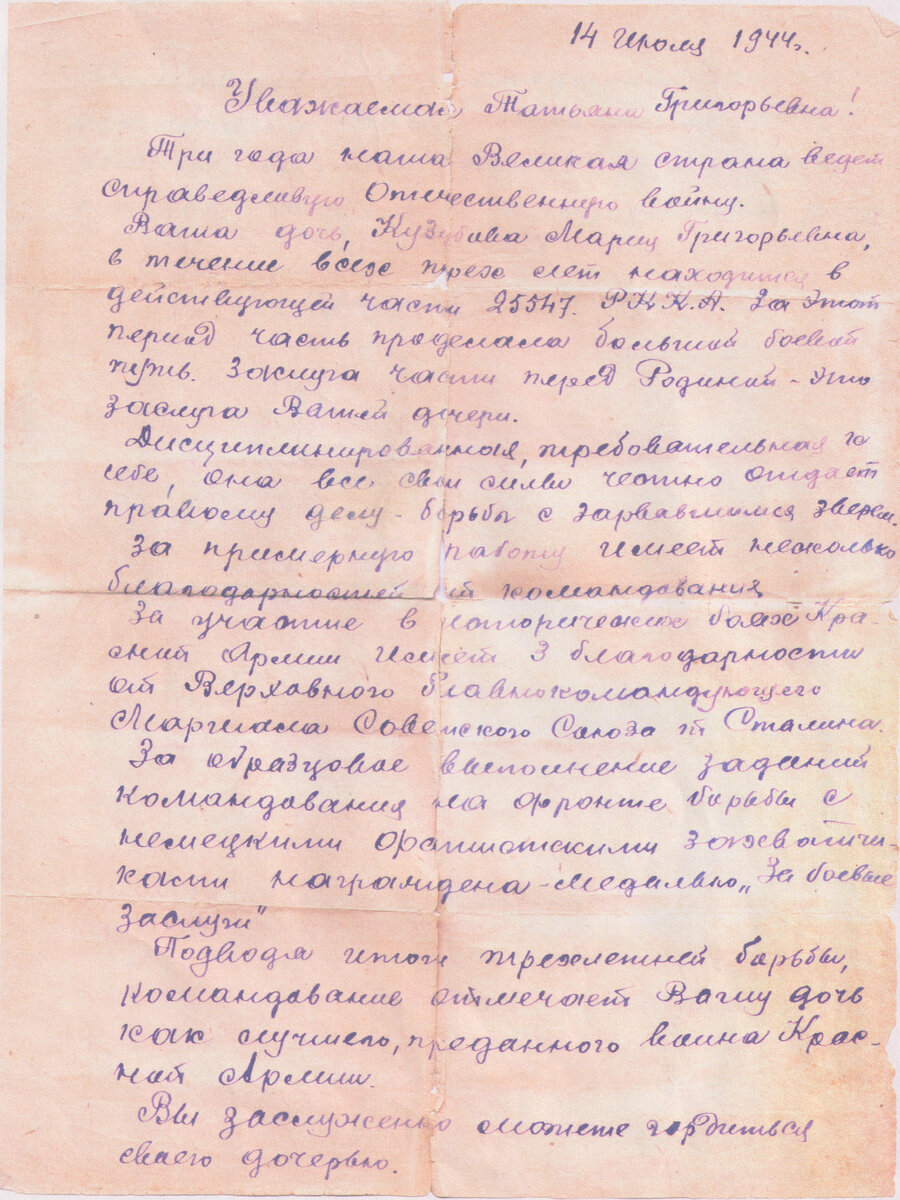 14 Июля 1944г.
Уважаемая Татьяна Григорьевна!
Три года наша Великая страна ведет
справедливую Отечественную войну.
Ваша дочь, Кузубова Мария Григорьевна,
в течение всех трех лет находится в
действующей части 25547. Р.К.К.А. За этот
период часть проделала большой боевой
путь. Заслуга части перед Родиной - это
заслуга Вашей дочери.
Дисциплинированная, требовательная к
себе, она все свои силы честно отдает
правому делу - борьбы с зарвавшимся зверем.
За примерную работу имеет несколько
благодарностей от командования
За участие в исторических боях Кра-
сной Армии имеет 3 благодарности
от Верховного Главнокомандующего
Маршала Советского Союза т Сталина.
За образцовое выполнение заданий
командования на фронте борьбы с
немецкими фашистскими захватчи-
ками награждена - медалью „За боевые
заслуги"
Подводя итоги трехлетней борьбы,
командование отмечает Вашу дочь
как лучшего, преданного воина Крас-
ной Армии.
Вы заслуженно можете гордиться
своего дочерью.